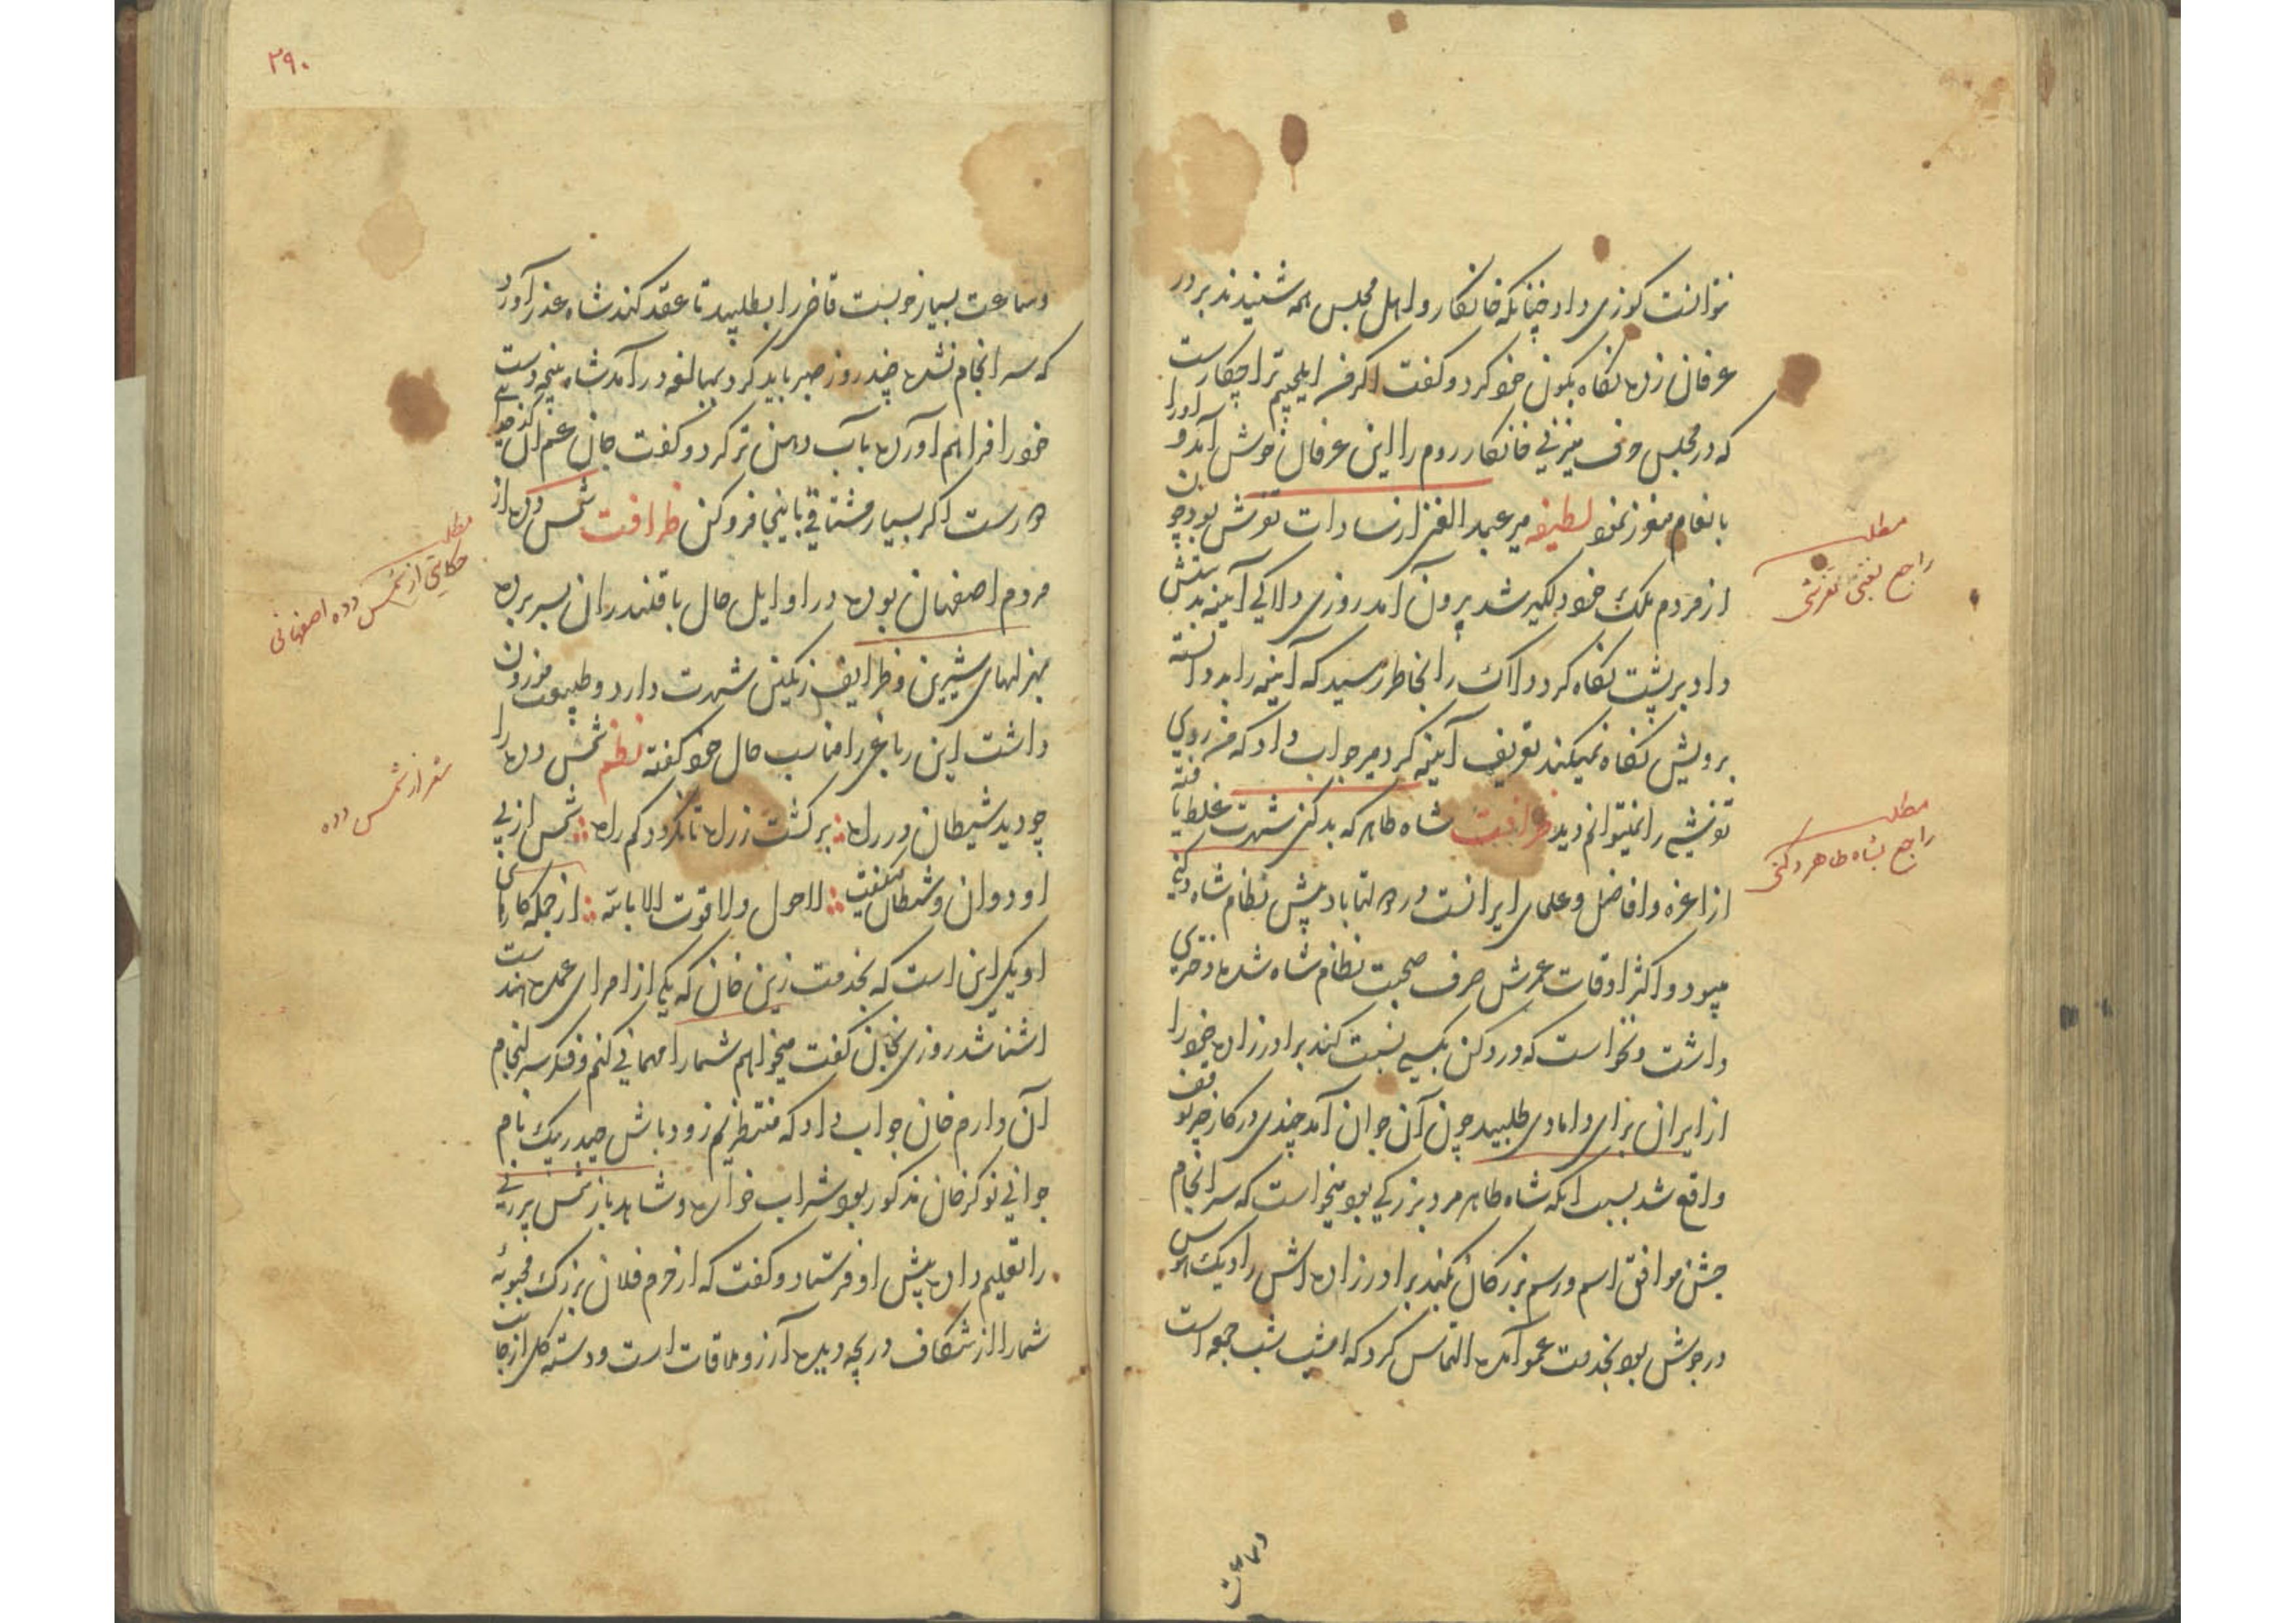 نتوانست کوزی داد چنانکه خانکار و اهل مجلس همه شنیدند بر در
عرفان زده نکاه بکون خود کرد و کفت اکر من ایلچیم ترا چکارست
که در مجلس حرف میزنی خانکار روم را این عرفان خوش آمد و او را
بانعام معزز نمود لطیفه میر عبد الغنی از سادات تفرش بود چون
از مردم ملک خود دلکیر شد برون آمد روزی دلاکی آینه بدستش
داد بر پشت نکاه کرد دلاک را بخاطر رسید که آینه را بد دانسته
برویش نکاه نمیکند تعریف آینه کرد میر جواب داد که من روی
تفرشی را نمیتوانم دید ظرافت شاه طاهر که بدکنی شهرت غلط یافته
از اعزه و افاضل و علمای ایرانست در دولتاباد پیش نظام شاه دکنی
میبود و اکثر اوقات عمرش صرف صحبت نظام شاه شده دختری
داشت و نخواست که در دکن بکسی نسبت کند برادرزاده خود را
از ایران برای دامادی طلبید چون آن جوان آمد چندی در کار خیر توقف
واقع شد بسبب انکه شاه طاهر مرد بزرکی بود میخواست که سرانجام
جشن موافق اسم و رسم بزرکان بکند برادرزاده اش را دیک هوس
در جوش بود بخدمت عمو آمده التماس کرد که امشب شب جمعه است
وساعت
مطلب
راجع بغنی تفرشی
مطلب
راجع بشاه طاهر دکنی
۲۹۰
وساعت بسیار خوبست قاضی را بطلبید تا عقد کند شاه عذر آورد
که سرانجام نشده چند روز صبر باید کرد بمبالغه در آمد شاه پنجه دست
خود را فراهم آورده بآب دهن تر کرد و کفت جان عم
اکر بسیار مشتاقی باینجا فرو کن ظرافت شمس دده از
مردم اصفهان بوده در اوایل حال با قلندران بسر برده
بهزلهای شیرین و ظرایف رنکین شهرت دارد و طبیعت موزون
داشت این رباعی را مناسب حال خود کفته نظم شمس دده را
چو دید شیطان در راه برکشت ز راه تا نکردد کم راه شمس از پی
او دوان و شیطان میکفت لا حول ولا قوت الا بالله از جمله کارهای
او یکی این است که بخدمت زین خان که یکی از امرای عمده هند است
اشنا شد روزی بخان کفت میخواهم شما را مهمانی کنم و فکر سرانجام
آن دارم خان جواب داد که منتظریم زود باش حیدر بیک نام
جوانی نوکر خان مذکور بود شراب خواره و شاهد باز شمس پیرزنی
را تعلیم داده پیش او فرستاد و کفت که از حرم فلان بزرک محبوبه
شما را از شکاف دریچه دیده آرزو ملاقات است و دسته کل از جانب
مطلب
حکایتی از شمس دده اصفهانی
شعر از شمس دده